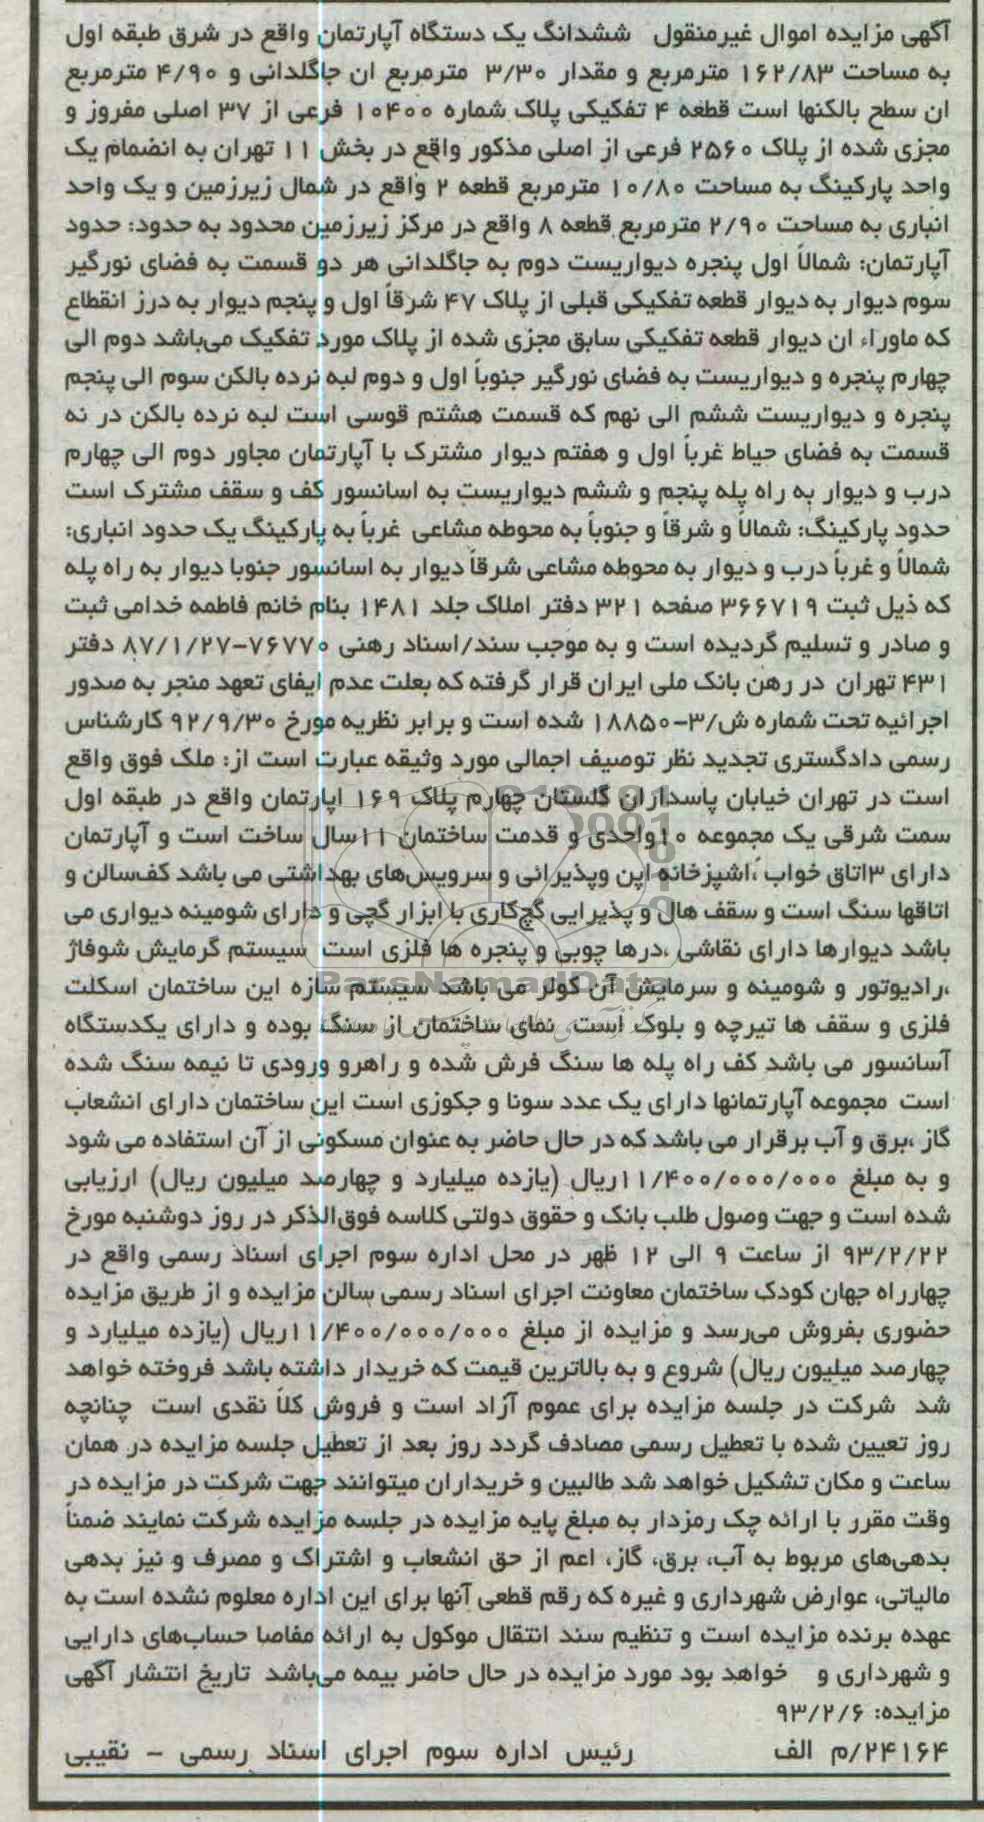 آگهی مزایده اموال غیرمنقول ششدانگ یک دستگاه آپارتمان واقع در شرق طبقه اول
به مساحت ۱۶۲/۸۳ مترمربع و مقدار ۳/۳۰ مترمربع ان جاگلدانی و ۴/۹۰ مترمربع
ان سطح بالکنها است قطعه ۴ تفکیکی پلاک شماره ۱۰۴۰۰ فرعی از ۳۷ اصلی مفروز و
مجزی شده از پلاک ۲۵۶۰ فرعی از اصلی مذکور واقع در بخش ۱۱ تهران به انضمام یک
واحد پارکینگ به مساحت ۱۰/۸۰ مترمربع قطعه ۲ واقع در شمال زیرزمین و یک واحد
انباری به مساحت ۲/۹۰ مترمربع قطعه ۸ واقع در مرکز زیرزمین محدود به حدود: حدود
آپارتمان: شمالاً اول پنجره دیواریست دوم به جاگلدانی هر دو قسمت به فضای نورگیر
سوم دیوار به دیوار قطعه تفکیکی قبلی از پلاک ۴۷ شرقاً اول و پنجم دیوار به درز انقطاع
که ماوراء ان دیوار قطعه تفکیکی سابق مجزی شده از پلاک مورد تفکیک می‌باشد دوم الی
چهارم پنجره و دیواریست به فضای نورگیر جنوباً اول و دوم لبه نرده بالکن سوم الی پنجم
پنجره و دیواریست ششم الی نهم که قسمت هشتم قوسی است لبه نرده بالکن در نه
قسمت به فضای حیاط غرباً اول و هفتم دیوار مشترک با آپارتمان مجاور دوم الی چهارم
درب و دیوار به راه پله پنجم و ششم دیواریست به اسانسور کف و سقف مشترک است
حدود پارکینگ: شمالاً و شرقاً و جنوباً به محوطه مشاعی غرباً به پارکینگ یک حدود انباری:
شمالاً و غرباً درب و دیوار به محوطه مشاعی شرقاً دیوار به اسانسور جنوبا دیوار به راه پله
که ذیل ثبت ۳۶۶۷۱۹ صفحه ۳۲۱ دفتر املاک جلد ۱۴۸۱ بنام خانم فاطمه خدامی ثبت
و صادر و تسلیم گردیده است و به موجب سند/اسناد رهنی ۷۶۷۷۰-۸۷/۱/۲۷ دفتر
۴۳۱ تهران در رهن بانک ملی ایران قرار گرفته که بعلت عدم ایفای تعهد منجر به صدور
اجرائیه تحت شماره ش/۳-۱۸۸۵۰ شده است و برابر نظریه مورخ ۹۲/۹/۳۰ کارشناس
رسمی دادگستری تجدید نظر توصیف اجمالی مورد وثیقه عبارت است از: ملک فوق واقع
است در تهران خیابان پاسداران گلستان چهارم پلاک ۱۶۹ اپارتمان واقع در طبقه اول
سمت شرقی یک مجموعه ۱۰واحدی و قدمت ساختمان ۱۱سال ساخت است و آپارتمان
دارای ۳اتاق خواب ،اشپزخانه اپن وپذیرائی و سرویس‌های بهداشتی می باشد کف‌سالن و
اتاقها سنگ است و سقف هال و پذیرایی گچ‌کاری با ابزار گچی و دارای شومینه دیواری می
باشد دیوارها دارای نقاشی ،درها چوبی و پنجره ها فلزی است سیستم گرمایش شوفاژ
،رادیوتور و شومینه و سرمایش آن کولر می باشد سیستم سازه این ساختمان اسکلت
فلزی و سقف ها تیرچه و بلوک است نمای ساختمان از سنگ بوده و دارای یکدستگاه
آسانسور می باشد کف راه پله ها سنگ فرش شده و راهرو ورودی تا نیمه سنگ شده
است مجموعه آپارتمانها دارای یک عدد سونا و جکوزی است این ساختمان دارای انشعاب
گاز ،برق و آب برقرار می باشد که در حال حاضر به عنوان مسکونی از آن استفاده می شود
و به مبلغ ۱۱/۴۰۰/۰۰۰/۰۰۰ریال (یازده میلیارد و چهارصد میلیون ریال) ارزیابی
شده است و جهت وصول طلب بانک و حقوق دولتی کلاسه فوق‌الذکر در روز دوشنبه مورخ
۹۳/۲/۲۲ از ساعت ۹ الی ۱۲ ظهر در محل اداره سوم اجرای اسناد رسمی واقع در
چهارراه جهان کودک ساختمان معاونت اجرای اسناد رسمی سالن مزایده و از طریق مزایده
حضوری بفروش می‌رسد و مزایده از مبلغ ۱۱/۴۰۰/۰۰۰/۰۰۰ریال (یازده میلیارد و
چهارصد میلیون ریال) شروع و به بالاترین قیمت که خریدار داشته باشد فروخته خواهد
شد شرکت در جلسه مزایده برای عموم آزاد است و فروش کلاً نقدی است چنانچه
روز تعیین شده با تعطیل رسمی مصادف گردد روز بعد از تعطیل جلسه مزایده در همان
ساعت و مکان تشکیل خواهد شد طالبین و خریداران میتوانند جهت شرکت در مزایده در
وقت مقرر با ارائه چک رمزدار به مبلغ پایه مزایده در جلسه مزایده شرکت نمایند ضمناً
بدهی‌های مربوط به آب، برق، گاز، اعم از حق انشعاب و اشتراک و مصرف و نیز بدهی
مالیاتی، عوارض شهرداری و غیره که رقم قطعی آنها برای این اداره معلوم نشده است به
عهده برنده مزایده است و تنظیم سند انتقال موکول به ارائه مفاصا حساب‌های دارایی
و شهرداری و خواهد بود مورد مزایده در حال حاضر بیمه می‌باشد تاریخ انتشار آگهی
مزایده: ۹۳/۲/۶
۲۴۱۶۴/م الف رئیس اداره سوم اجرای اسناد رسمی - نقیبی
ParsNamadData